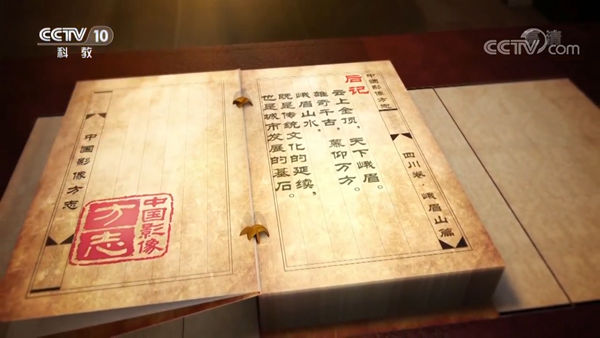 CCTV 10
科教
高清
CCTV.com
中国影像方志
四川卷·峨眉山篇
后记
云上金顶，天下峨眉。
雄奇千古，慕仰万方。
峨眉山水，
既是传统文化的延续，
也是城市发展的基石。
中国影像方志
中国影像
方志